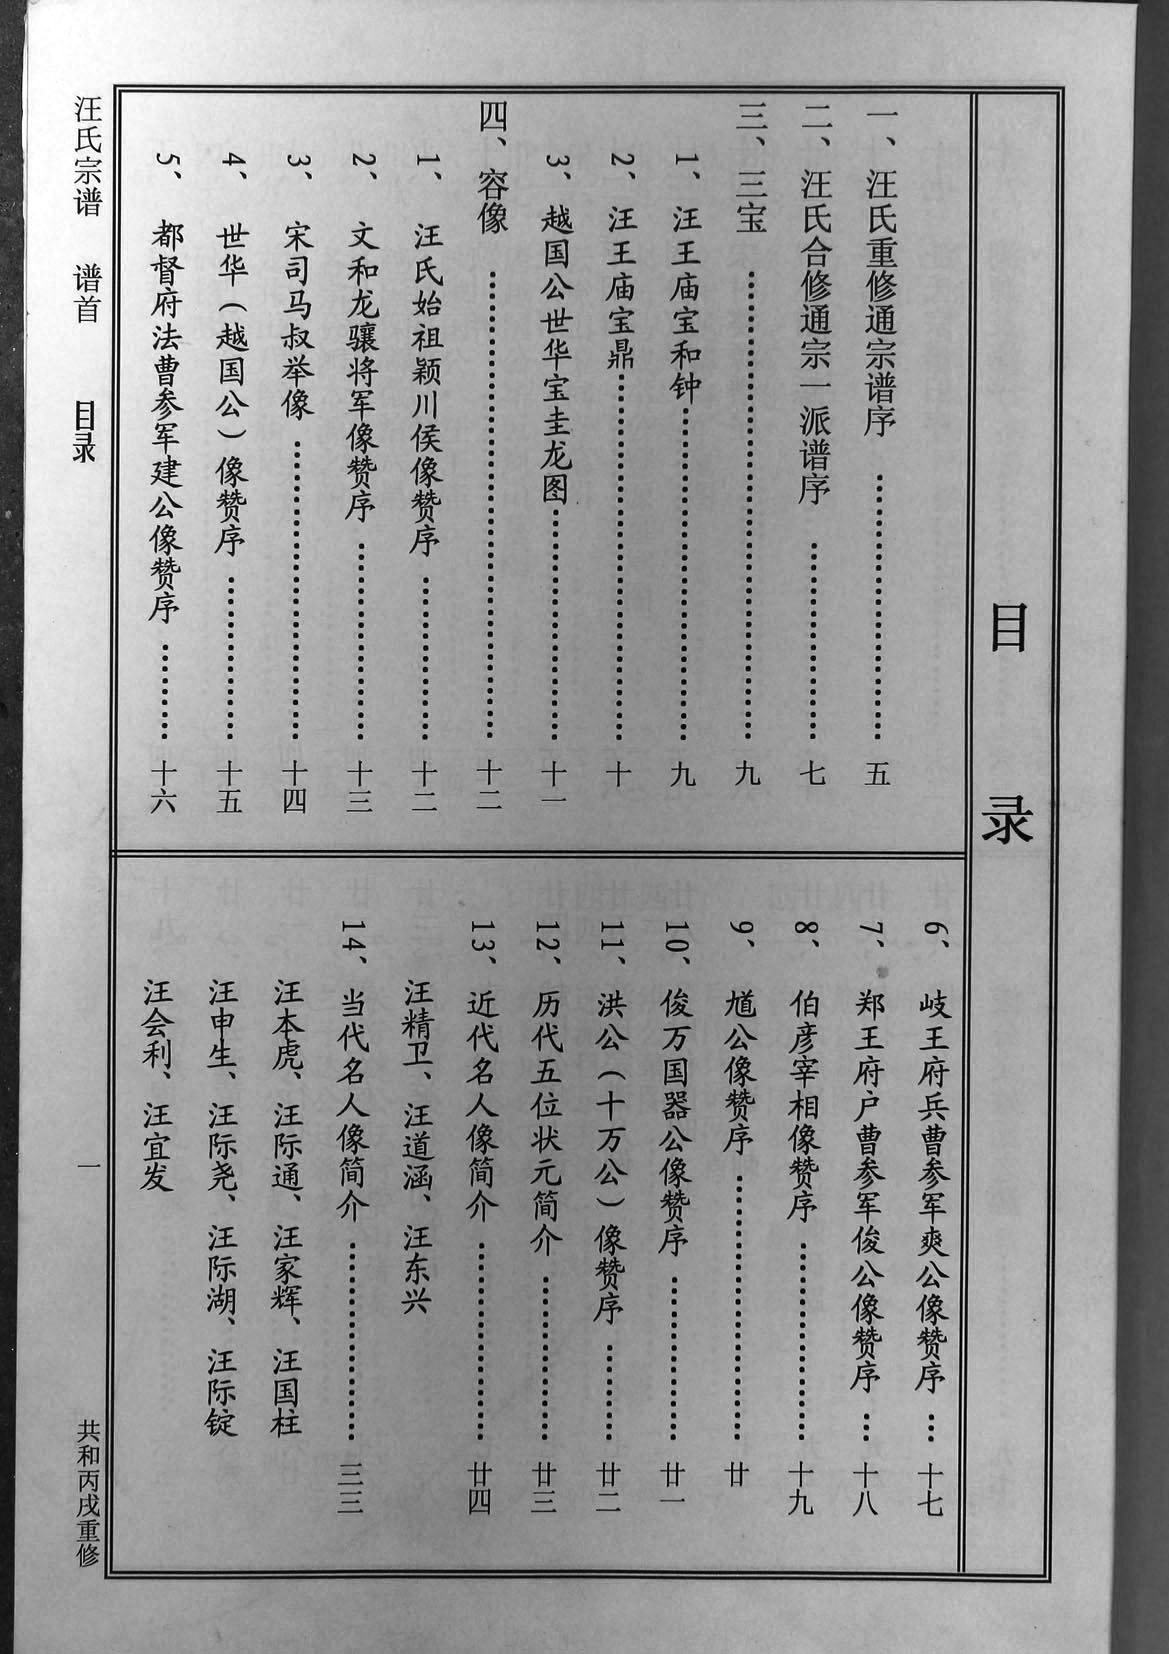 目 录
一、汪氏重修通宗谱序……………………五
二、汪氏合修通宗一派谱序………………七
三、三宝……………………………………九
1、汪王庙宝和钟…………………………九
2、汪王庙宝鼎……………………………十
3、越国公世华宝圭龙图…………………十一
四、容像……………………………………十二
1、汪氏始祖颖川侯像赞序………………十二
2、文和龙骧将军像赞序…………………十三
3、宋司马叔举像…………………………十四
4、世华（越国公）像赞序………………十五
5、都督府法曹参军建公像赞序…………十六
6、岐王府兵曹参军爽公像赞序…十七
7、郑王府户曹参军俊公像赞序…十八
8、伯彦宰相像赞序………………十九
9、馗公像赞序……………………廿
10、俊万国器公像赞序……………廿一
11、洪公（十万公）像赞序………廿二
12、历代五位状元简介……………廿三
13、近代名人像简介………………廿四
汪精卫、汪道涵、汪东兴
14、当代名人像简介………………三三
汪本虎、汪际通、汪家辉、汪国柱
汪申生、汪际尧、汪际湖、汪际锭
汪会利、汪宜发
汪氏宗谱 谱首 目录 一 共和丙戌重修